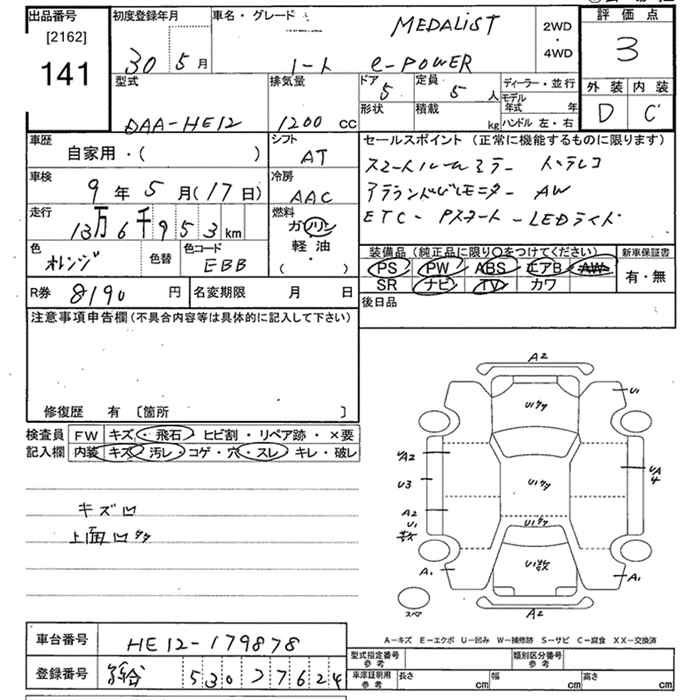 出品番号
[2162]
141
初度登録年月
30 5月
車名・グレード
MEDALIST
ノート e-POWER
2WD
・
4WD
評価点
3
外装 内装
D C
型式
DAA-HE12
排気量
1200 CC
ドア
5
定員
5 人
形状
積載
kg
ディーラー・並行
モデル年式 年
ハンドル 左・右
車歴
自家用・( )
シフト
AT
セールスポイント (正常に機能するものに限ります)
スマートルームミラー ドラレコ
アラウンドビューモニター AW
ETC- Pスタート -LEDライト
車検
9年 5月(17日)
冷房
AAC
走行
13万 6千 9 5 3 km
燃料
ガソリン
軽油
( ・ )
色
オレンジ
色替
色コード
EBB
装備品 (純正品に限り○をつけてください)
PS PW ABS エアB AW
SR ナビ TV カワ
新車保証書
有・無
R券
8190 円
名変期限 月 日
後日品
注意事項申告欄 (不具合内容等は具体的に記入して下さい)
修復歴 有 〔箇所 〕
検査員
記入欄
FW キズ・飛石・ヒビ割・リペア跡・×要
内装 キズ・汚レ・コゲ・穴・スレ・キレ・破レ
キズ凹
上面凹タタ
A2
U1タタ
U1
A2
U3
U1タタ
UA4
A2
U1
U1タタ
A1
A1
A2
スペア
A-キズ E-エクボ U-凹み W-補修跡 S-サビ C-腐食 XX-交換済
車台番号
HE12-179878
登録番号
530 27624
型式指定番号
参考
類別区分番号
参考
車庫証明用
参考
長さ cm
幅 cm
高さ cm